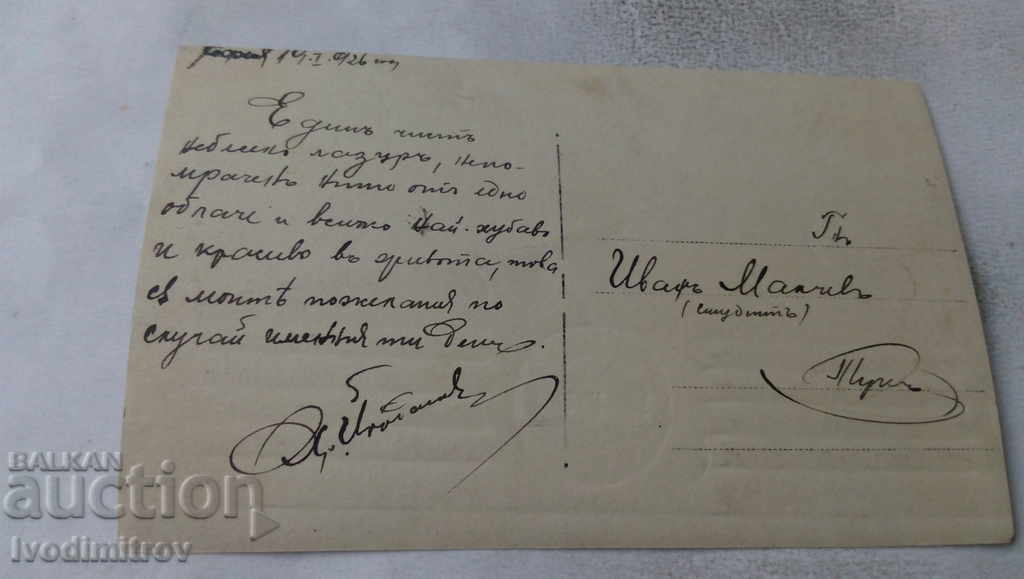 14.I.926
Единъ чистъ
небесно лазуръ, непо-
мраченъ нито отъ едно
облаче и всичко най-хубаво
и красиво въ живота, това
сѫ моитѣ пожелания по
случай имения ти день.
Г-нъ
Иванъ Манчевъ
(студентъ)
Тукъ
BALKAN
auction
Ivodimitrov